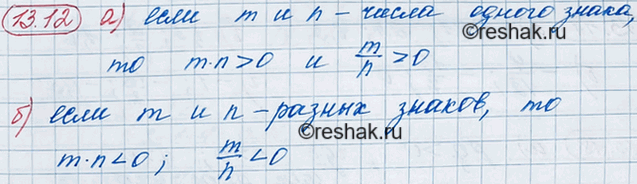 13.12 а) если m и n – числа одного знака,
то m·n>0 и m/n >0
©reshak.ru
б) если m и n – разных знаков, то
©reshak.ru
m·n<0; m/n <0